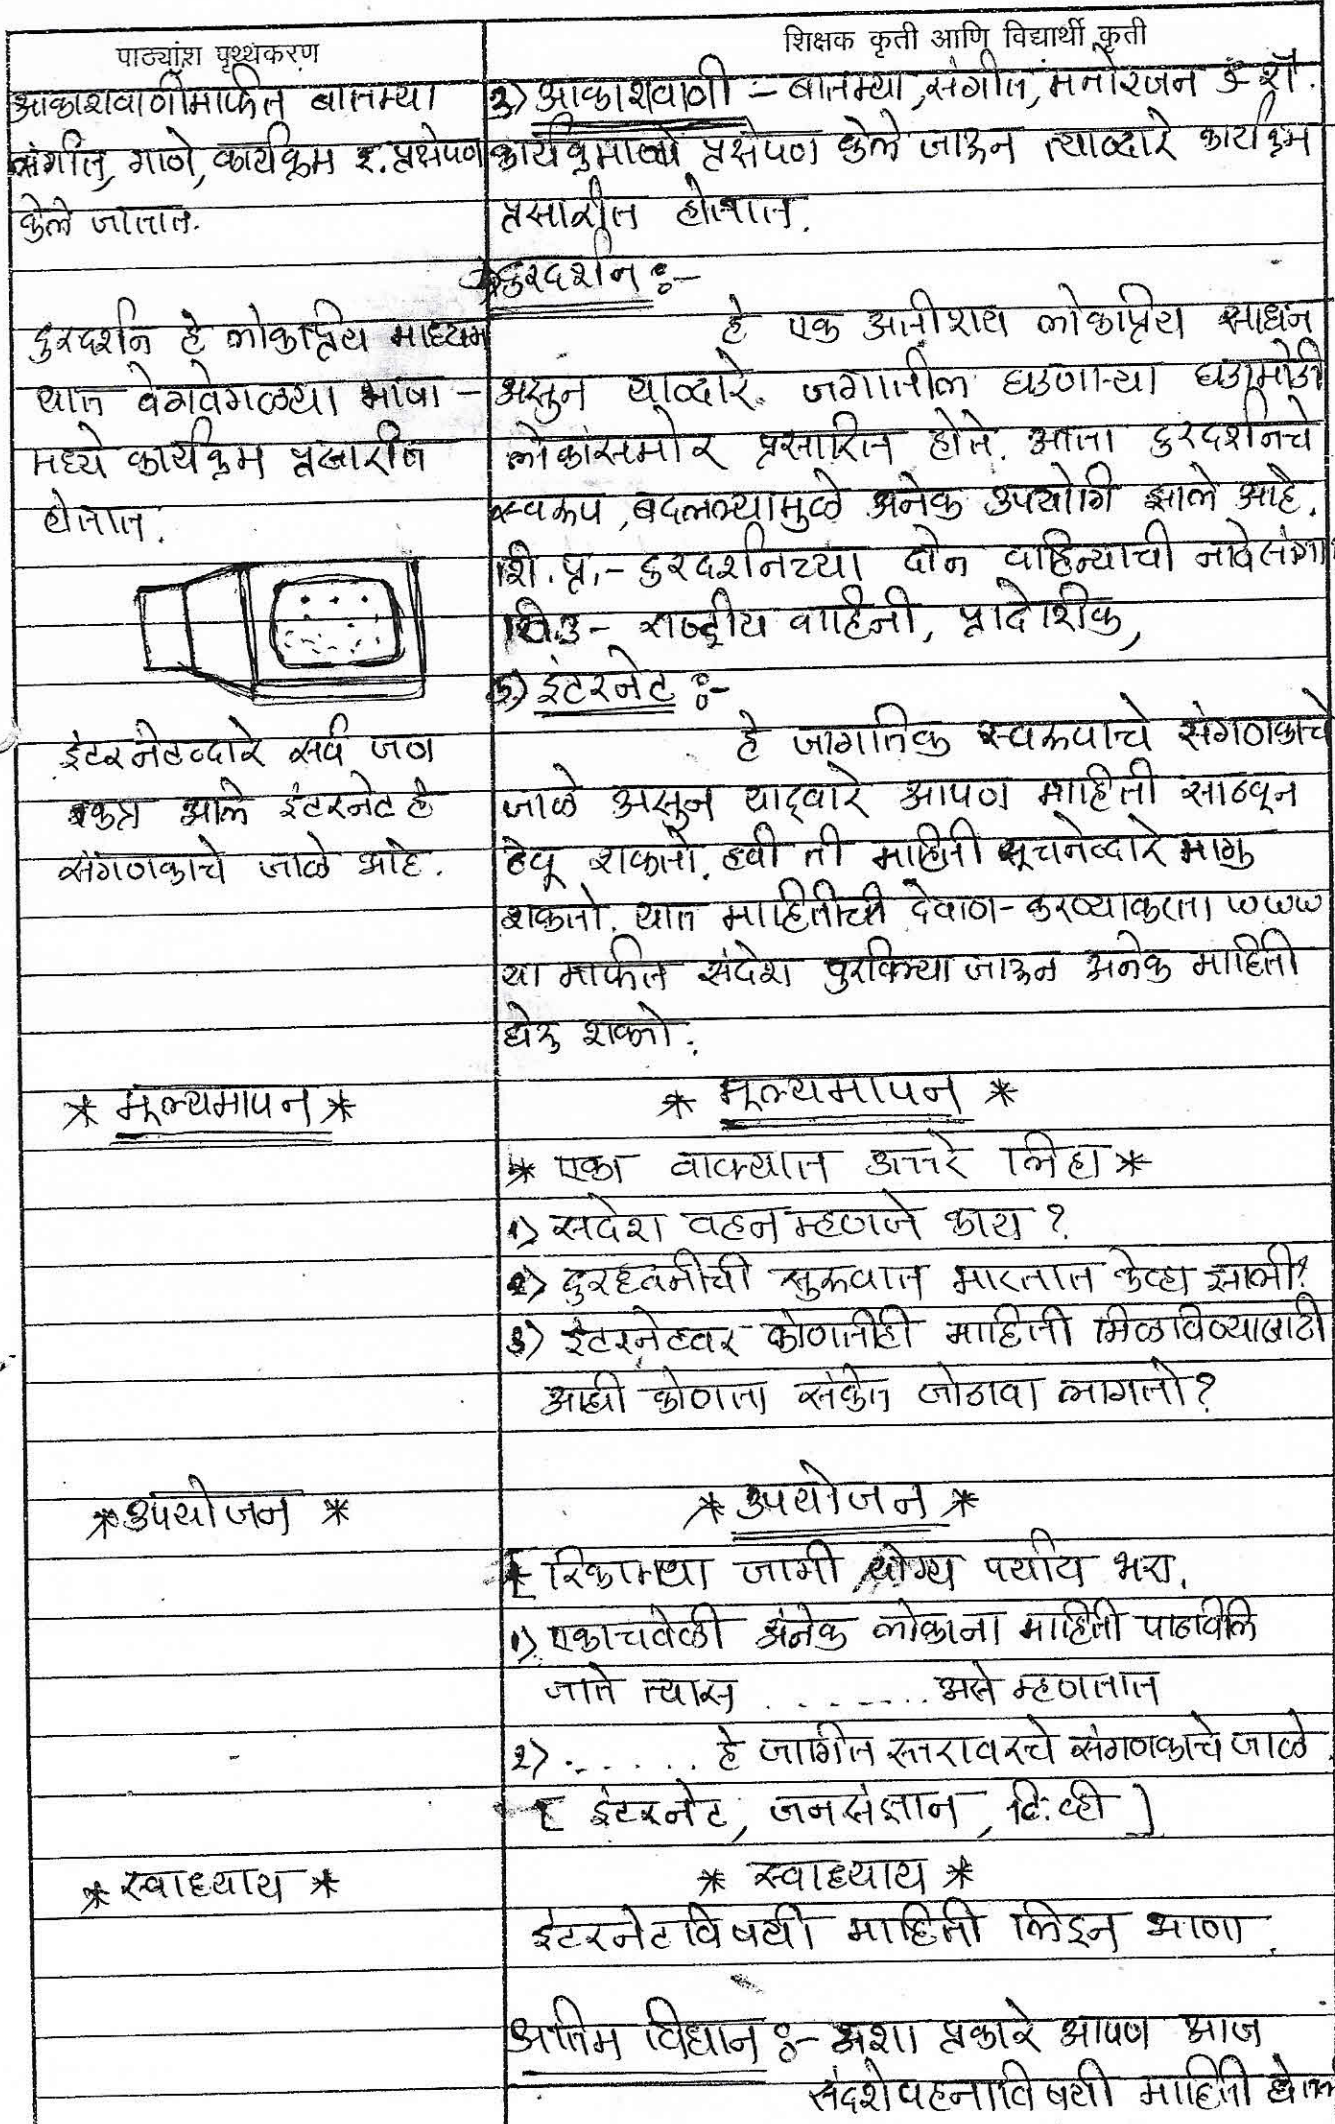 पाठ्यांश पृथ्थकरण
आकाशवाणीमार्फत बातम्या
संगीत, गाणे, कार्यक्रम इ. प्रक्षेपण
केले जातात.
दुरदर्शन हे लोकप्रिय माध्यम
यात वेगवेगळ्या भाषा -
मध्ये कार्यक्रम प्रसारीत
होतात.
इंटरनेटव्दारे सर्व जग
एकत्र आले इंटरनेट हे
संगणकाचे जाळे आहे.
* मूल्यमापन *
* उपयोजन *
* स्वाध्याय *
शिक्षक कृती आणि विद्यार्थी कृती
३) आकाशवाणी :- बातम्या, संगीत, मनोरंजन
कार्यक्रमाचे प्रक्षेपण केले जाऊन त्याव्दारे कार्यक्रम
प्रसारीत होतात.
दुरदर्शन :-
हे एक अतीशय लोकप्रिय साधन
असुन याव्दारे. जगातील घडणाऱ्या घडामोडी
लोकांसमोर प्रसारित होते. आता दुरदर्शनचे
स्वरूप, बदलल्यामुळे अनेक उपयोगि झाले आहे.
शि. प्र.- दुरदर्शनच्या दोन वाहिन्याची नावे सांगा
वि.उ - राष्ट्रीय वाहिनी, प्रादेशिक,
५) इंटरनेट :-
हे जागतिक स्वरूपाचे संगणकाचे
जाळे असुन याद्वारे आपण माहिती साठवून
ठेवू शकतो. हवी ती माहिती सूचनेव्दारे मागु
शकतो. यात माहितीची देवाण - करण्याकरता www
या मार्फत संदेश पुरविल्या जाऊन अनेक माहिती
घेऊ शकतो.
* मूल्यमापन *
* एका वाक्यात उत्तरे लिहा *
१) सदेश वहन म्हणजे काय ?
२) दुरध्वनीची सुरुवात भारतात केव्हा झाली?
३) इंटरनेटवर कोणतीही माहिती मिळविण्यासाठी
आधी कोणता संकेत जोडावा लागतो?
* उपयोजन *
* रिकाम्या जागी योग्य पर्याय भरा.
१) एकाचवेळी अनेक लोकाना माहिती पाठविलि
जाते त्यास ....... असे म्हणतात
२) ....... हे जागतिक स्तरावरचे संगणकाचे जाळे
[ इंटरनेट, जनसंज्ञान, टि.व्ही ]
* स्वाध्याय *
इंटरनेटविषयी माहिती लिहून आणा.
अंतिम विधान :- अशा प्रकारे आपण आज
संदशेवहनाविषयी माहिती